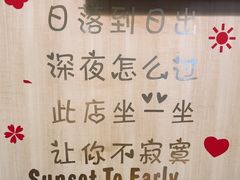 日落到日出
深夜怎么过
此店坐一坐
让你不寂寞
Sunset To Early